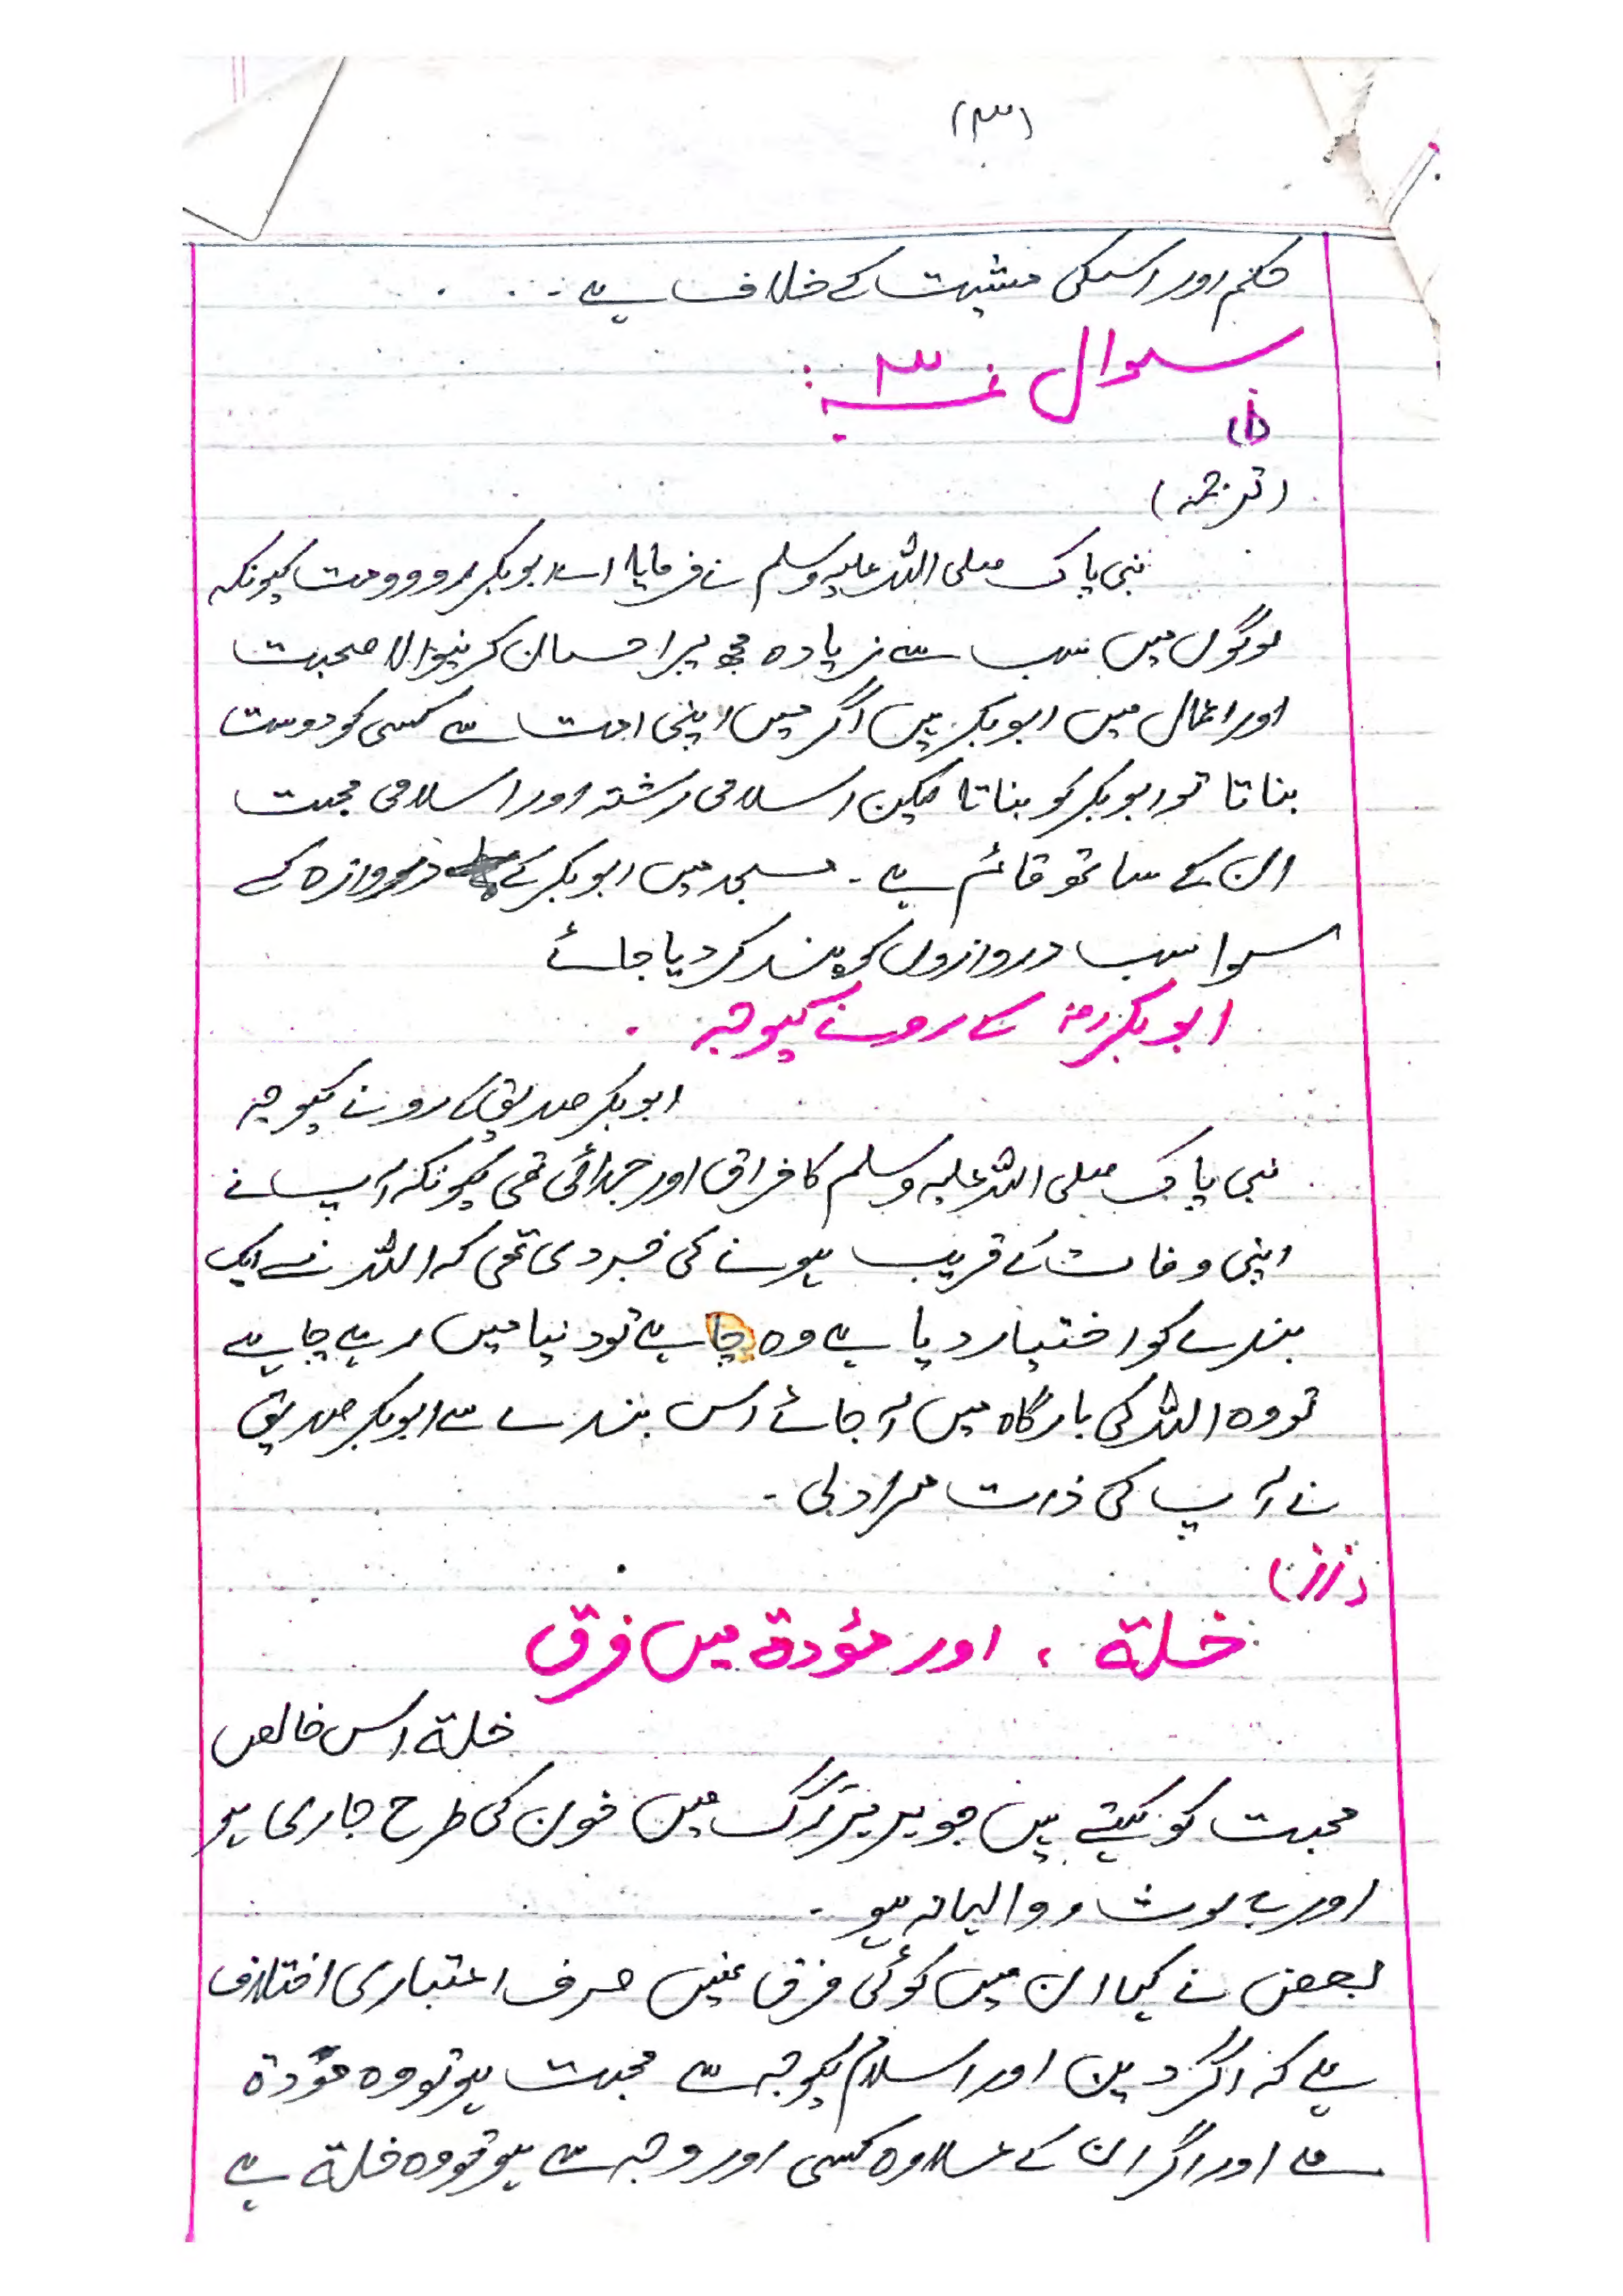 (۳)
حکم اور اسکی مشیت کے خلاف ہے ۔
سوال نمبر ۳ :
(i)
(ترجمہ)
نبی پاک صلی اللہ علیہ وسلم نے فرمایا اے ابوبکر رووو مت کیونکہ
لوگوں میں سب سے زیادہ مجھ پر احسان کرنیوالا صحبت
اور اعمال میں ابوبکر ہیں اگر میں اپنی امت سے کسی کو دوست
بناتا تو ابوبکر کو بناتا لیکن اسلامی رشتہ اور اسلامی محبت
ان کے ساتھ قائم ہے ۔ مسجد میں ابوبکر کے دروازہ کے
سوا سب دروازوں کو بند کر دیا جائے
ابوبکر رضہ کے رونے کیوجہ ۔
ابوبکر صدیق کے رونے کیوجہ
نبی پاک صلی اللہ علیہ وسلم کا فراق اور جدائی تھی کیونکہ آپ نے
اپنی وفات کے قریب ہونے کی خبر دی تھی کہ اللہ نے ایک
بندے کو اختیار دیا ہے وہ چاہے تو دنیا میں رہے چاہے
تو وہ اللہ کی بارگاہ میں آ جائے اس بندے سے ابوبکر صدیق
نے آپ کی ذات مراد لی ۔
(زز)
خلة ، اور مؤدة میں فرق
خلة اس خالص
محبت کو کہتے ہیں جو ہر ہر رگ میں خون کی طرح جاری ہو
اور بے لوث و والہانہ ہو ۔
بعض نے کہا ان میں کوئی فرق نہیں صرف اعتباری اختلاف
ہے کہ اگر دین اور اسلام کیوجہ سے محبت ہو تو وہ مؤدة
ہے اور اگر ان کے علاوہ کسی اور وجہ سے ہو تو وہ خلة ہے